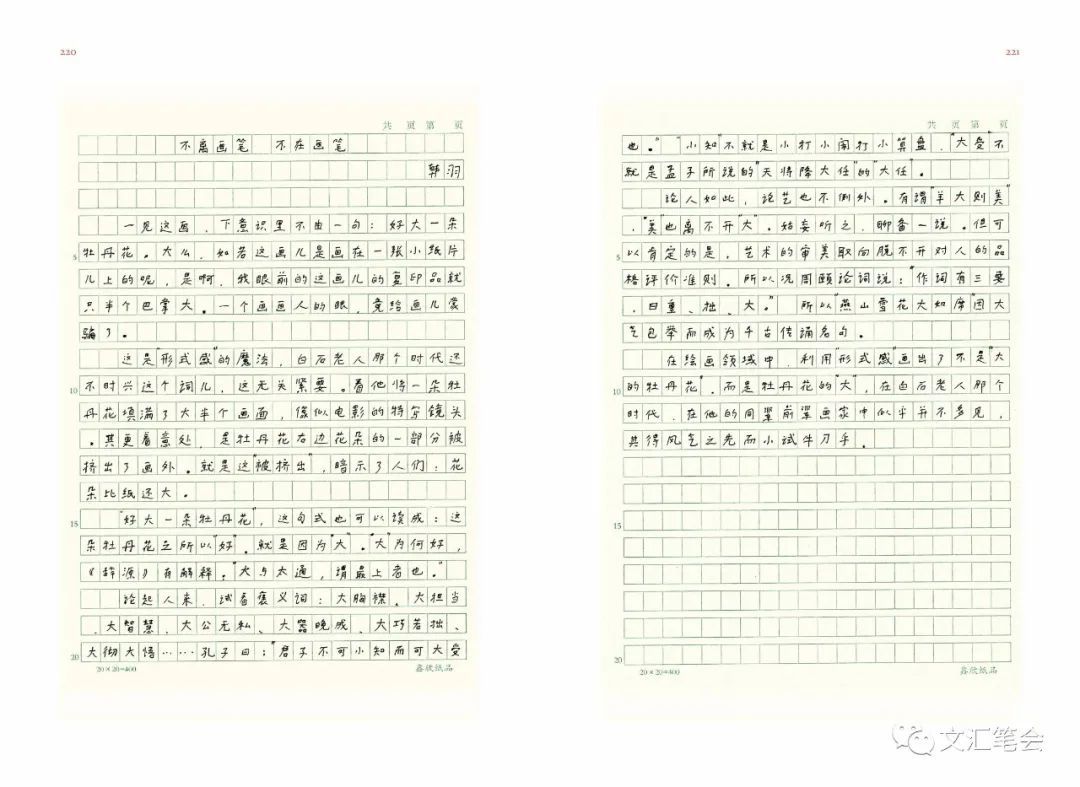 220
共 页 第 页
不离画笔 不在画笔
韩羽
一见这画，下意识里不由一句：好大一朵
5 牡丹花。大么，如若这画儿是画在一张小纸片
儿上的呢，是啊，我眼前的这画儿的复印品就
只半个巴掌大。一个画画人的眼，竟给画儿蒙
骗了。
这是“形式感”的魔法，白石老人那个时代还
10 不时兴这个词儿，这无关紧要。看他将一朵牡
丹花填满了大半个画面，像似电影的特写镜头
。其更着意处，是牡丹花右边花朵的一部分被
挤出了画外。就是这“被挤出”，暗示了人们：花
朵比纸还大。
15 “好大一朵牡丹花”，这句式也可以读成：这
朵牡丹花之所以“好”，就是因为“大”。“大”为何好，
《辞源》有解释。“大与太通，谓最上者也。”
论起人来，试看褒义词：大胸襟、大担当
、大智慧、大公无私、大器晚成、大巧若拙、
20 大彻大悟……孔子曰：“君子不可小知而可大受
20×20=400
鑫欣纸品
221
共 页 第 页
也。”“小知”不就是小打小闹打小算盘，“大受”不
就是孟子所说的“天将降大任”的“大任”。
论人如此，论艺也不例外。有谓“羊大则美”
，“美”也离不开“大”。姑妄听之，聊备一说。但可
5 以肯定的是，艺术的审美取向脱不开对人的品
格评价准则。所以况周颐论词说：“作词有三要
，曰重、拙、大。”所以“燕山雪花大如席”因大
气包举而成为千古传诵名句。
在绘画领域中，利用“形式感”画出了不是“大
10 的牡丹花”，而是牡丹花的“大”，在白石老人那个
时代，在他的同辈前辈画家中似乎并不多见，
其得风气之先而小试牛刀乎。
15
20
20×20=400
鑫欣纸品
文汇笔会